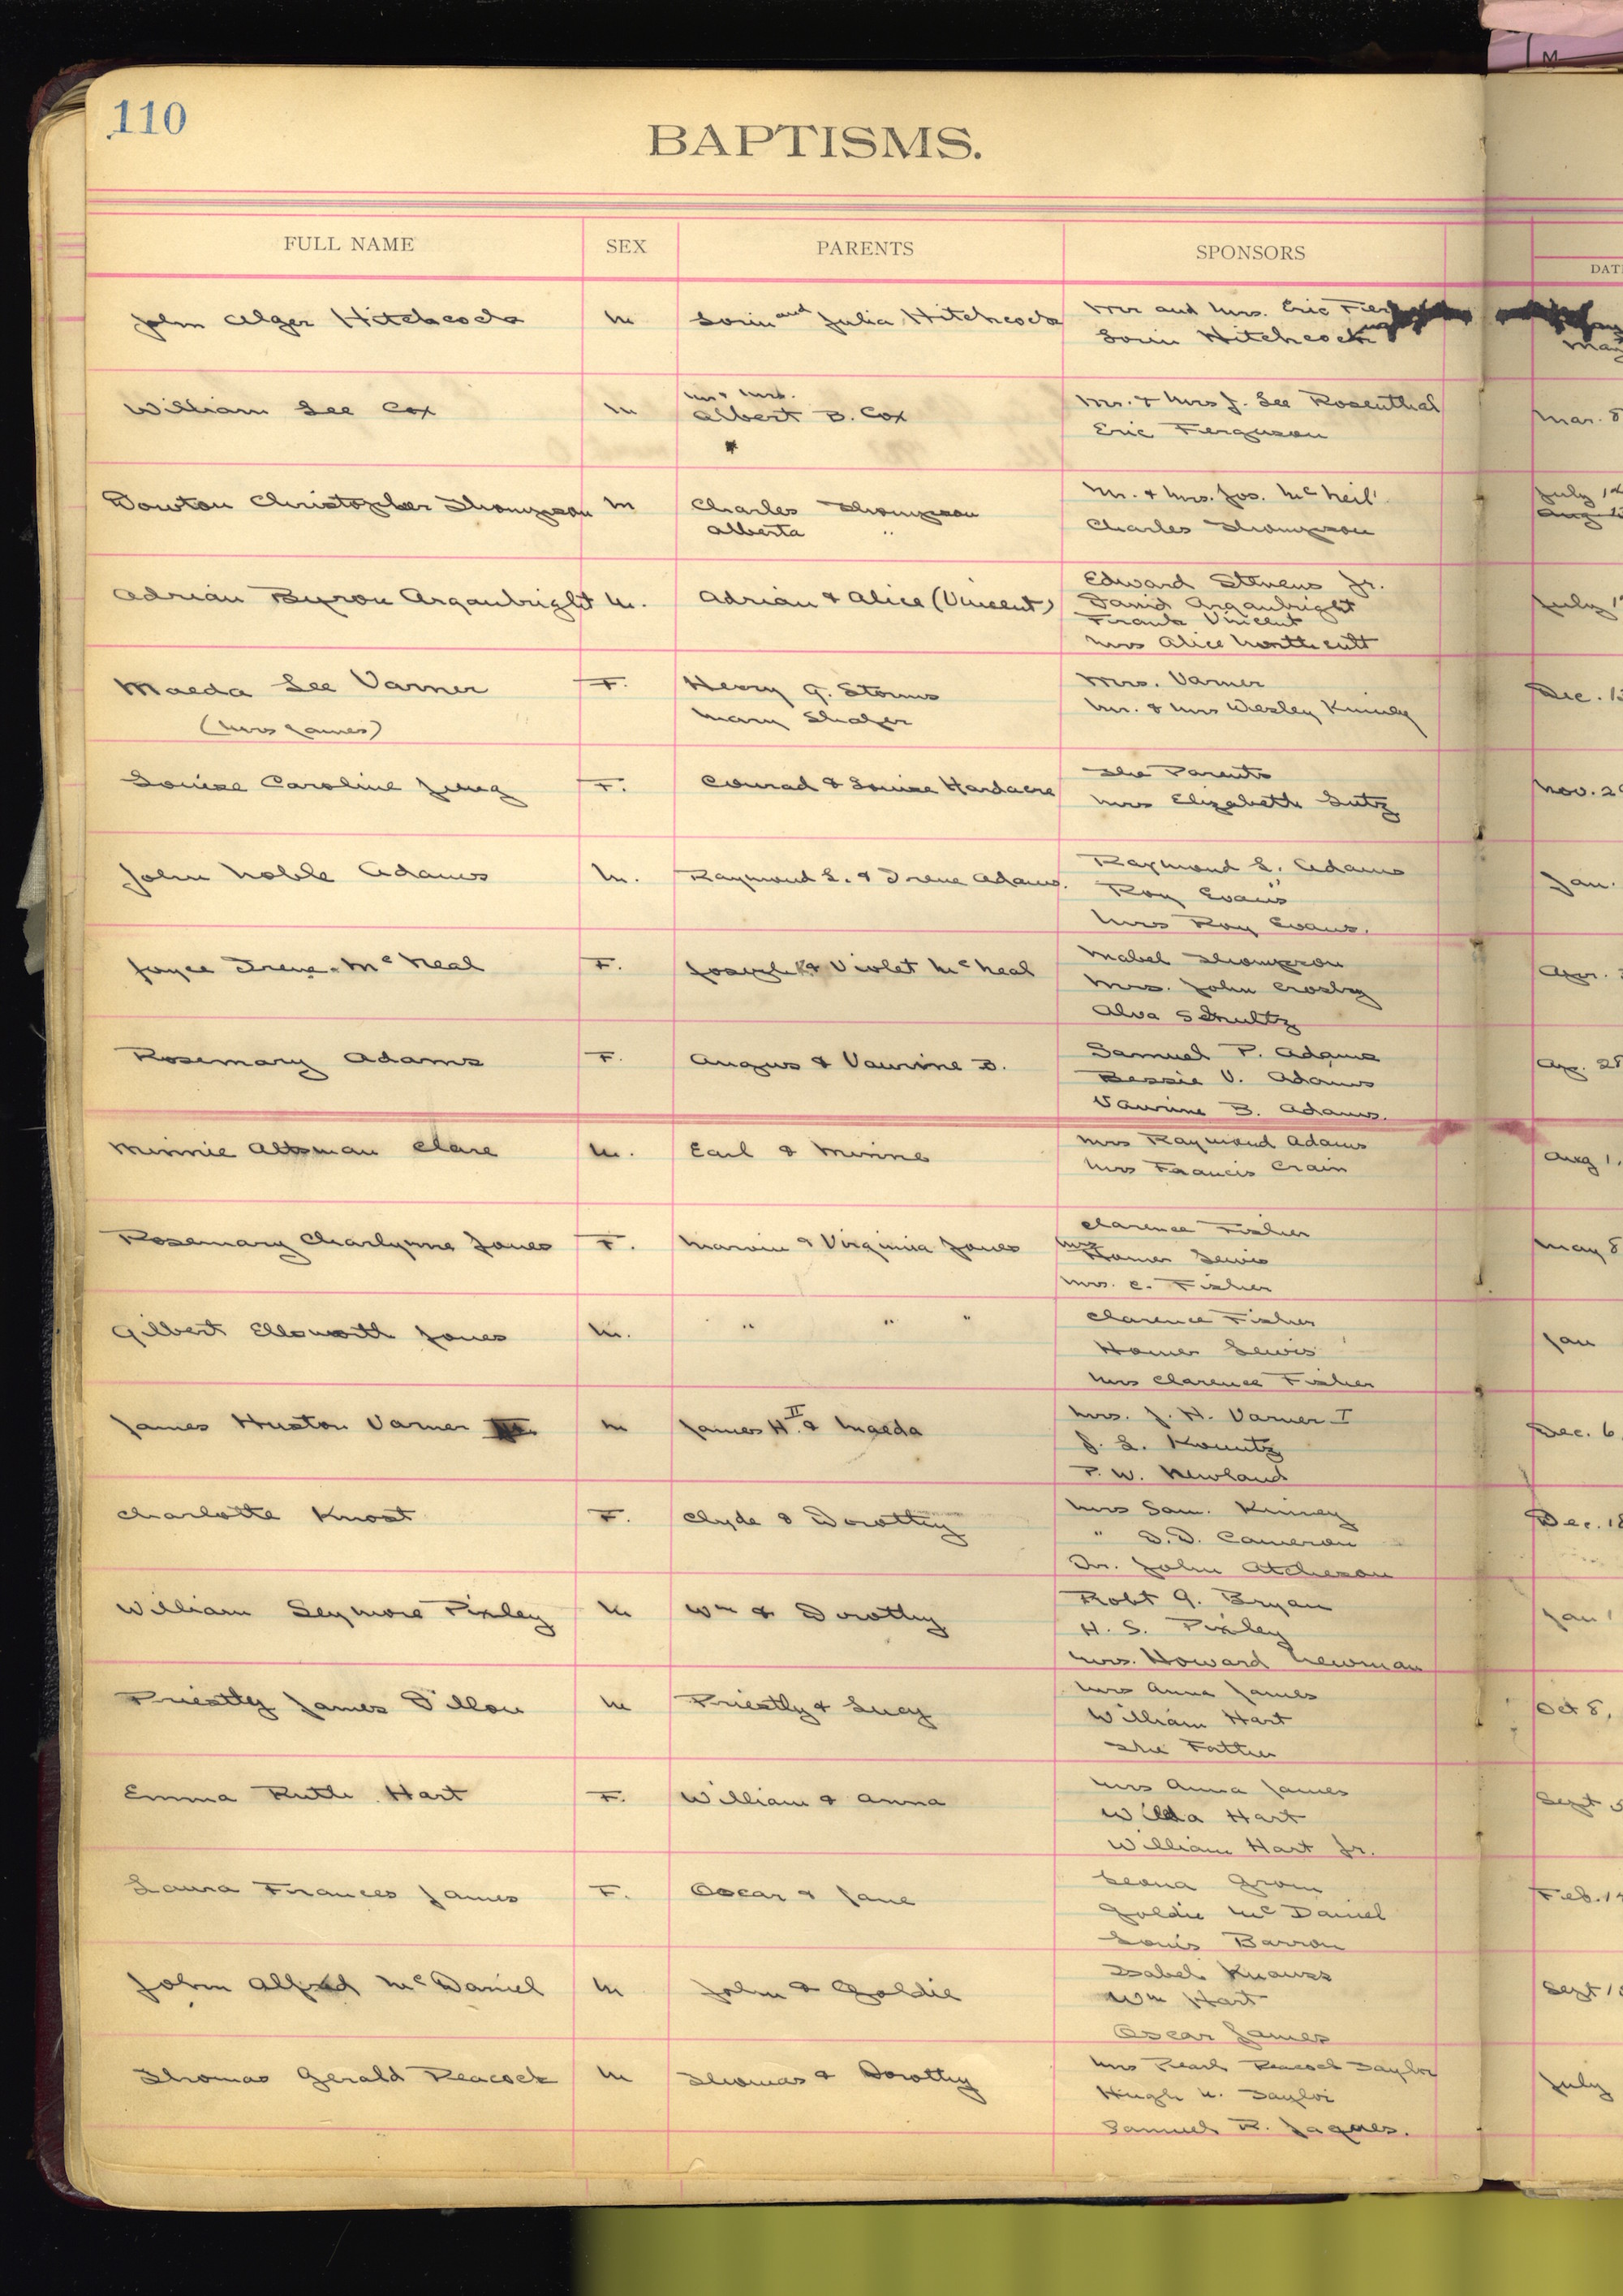 110
BAPTISMS.
FULL NAME SEX PARENTS SPONSORS
DATE
John Alger Hitchcock M Lorin and Julia Hitchcock Mr and Mrs. Eric
Lorin Hitchcock
William Lee Cox M Mr & Mrs. Mr. & Mrs J. Lee Rosenthal Mar. 8
Albert B. Cox Eric Ferguson
Christopher Thompson M Charles Thompson Mr. & Mrs. Jos. McNeil July
Alberta " Charles Thompson Aug
Adrian Byron Arganbright M. Adrian & Alice (Vincent) Edward Stevens Jr. July
David Arganbright
Frank Vincent
Mrs Alice Northcutt
Maeda Lee Varner F. Henry G. Storms Mrs. Varner Dec.
(Mrs James) Mary Shafer Mr. & Mrs Wesley Kinney
Louise Caroline Jung F. Conrad & Louise Hardacre The Parents Nov. 2
Mrs Elizabeth Lutz
John Noble Adams M. Raymond L. & Irene Adams. Raymond L. Adams Jan.
Roy Evans
Mrs Roy Evans.
Joyce Irene McNeal F. Joseph & Violet McNeal Mabel Thompson Apr.
Mrs. John Crosby
Alva Schultz
Rosemary Adams F. Angus & Vaurine B. Samuel P. Adams Ap. 28
Bessie V. Adams
Vaurine B. Adams.
Minnie Altman Clare M. Earl & Minnie Mrs Raymond Adams Aug 1,
Mrs Francis Crain
Rosemary Charlynne Jones F. Marvin & Virginia Jones Clarence Fisher May 8
Mrs Homer Lewis
Mrs. C. Fisher
Gilbert Ellsworth Jones M. " " " Clarence Fisher Jan
Homer Lewis
Mrs Clarence Fisher
James Huston Varner M James H. II & Maeda Mrs. J. H. Varner I Dec. 6
J. L. Kountz
P. W. Newland
Charlotte Knost F. Clyde & Dorothy Mrs Sam. Kinney Dec. 18
" D. D. Cameron
Dr. John Atcheson
William Seymore Pixley M Wm & Dorothy Robt G. Bryan Jan
H. S. Pixley
Mrs. Howard Newman
Priestly James Dillon M Priestly & Lucy Mrs Anna James Oct 8,
William Hart
The Father
Emma Ruth Hart F. William & Anna Mrs Anna James Sept
Wilda Hart
William Hart Jr.
Laura Frances James F. Oscar & Jane Leona Feb. 14
Goldie McDaniel
Louis Barron
John Alfred McDaniel M John & Goldie Isabel Knauss Sept
Wm Hart
Oscar James
Thomas Gerald Peacock M Thomas & Dorothy Mrs Pearl Peacock Taylor July
Hugh Taylor
Samuel R. Jaques.